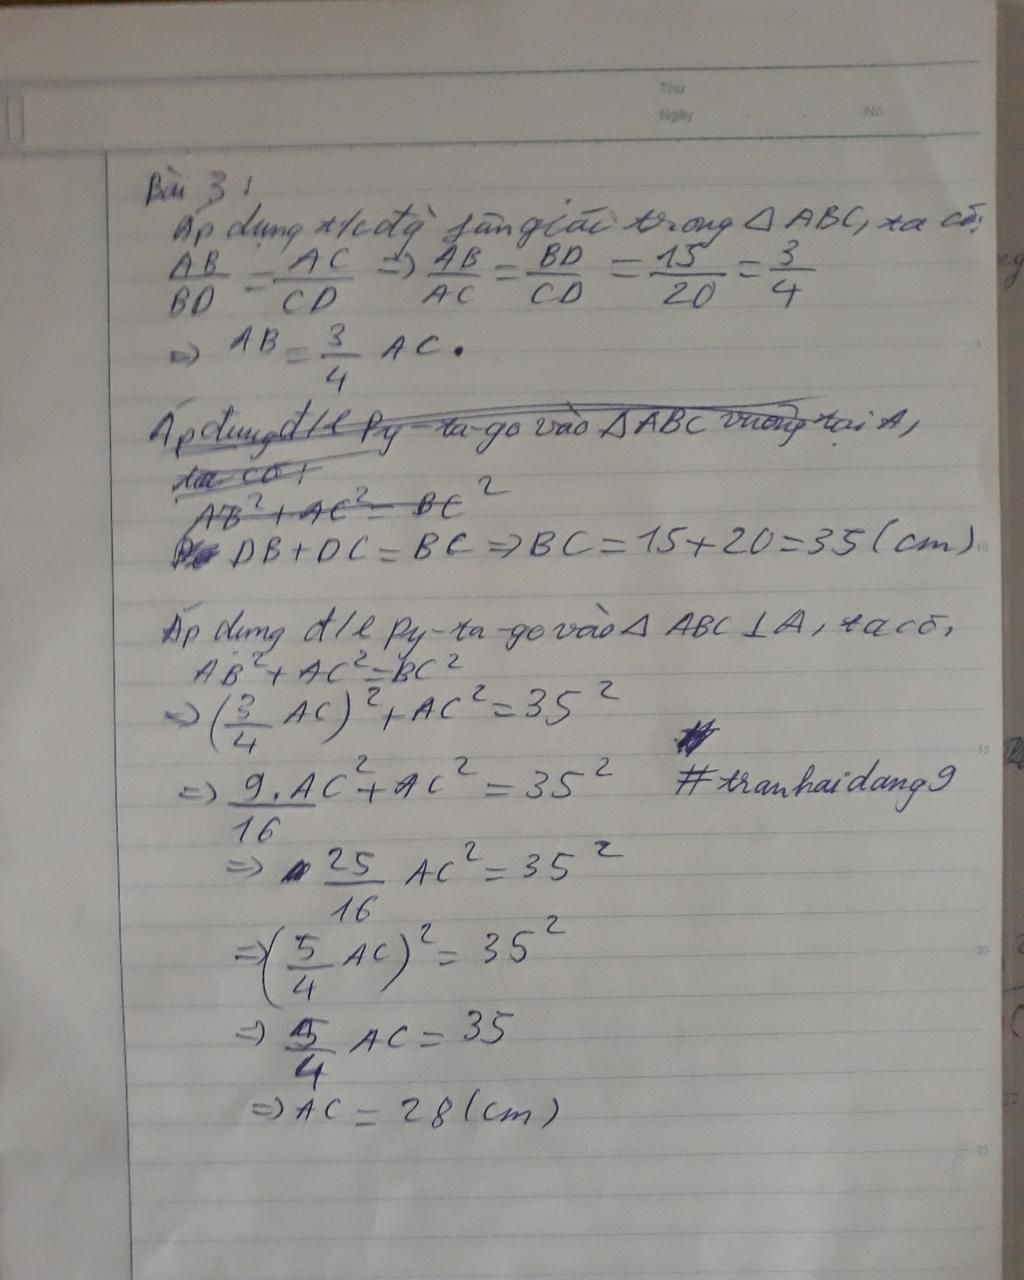 Thứ
Ngày No.
Bài 3:
Áp dụng t/c đg fân giác trong Δ ABC, ta có:
AB/BD = AC/CD => AB/AC = BD/CD = 15/20 = 3/4
=> AB = 3/4 AC.
Áp dụng đ/l Py-ta-go vào Δ ABC vuông tại A,
ta có:
AB² + AC² = BC²
DB + DC = BC => BC = 15 + 20 = 35 (cm)
Áp dụng đ/l Py-ta-go vào Δ ABC ⊥ A, ta có,
AB² + AC² = BC²
=> (3/4 AC)² + AC² = 35²
=> 9.AC²/16 + AC² = 35²
#tranhaidang9
=> 25/16 AC² = 35²
=> (5/4 AC)² = 35²
=> 5/4 AC = 35
=> AC = 28 (cm)